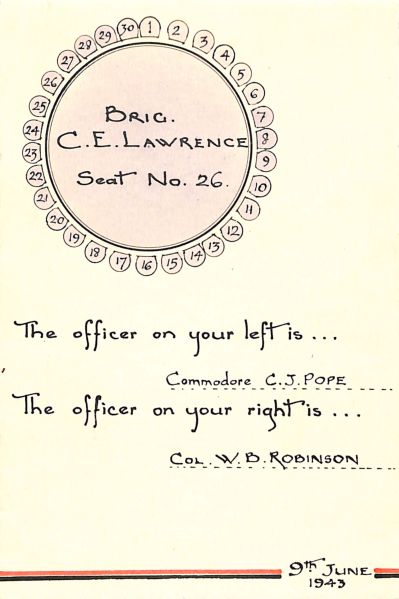 1 2 3 4 5 6 7 8 9 10 11 12 13 14 15 16 17 18 19 20 21 22 23 24 25 26 27 28 29 30
BRIG.
C. E. LAWRENCE
Seat No. 26.
The officer on your left is ...
Commodore C. J. POPE
The officer on your right is ...
COL. W. B. ROBINSON
9th JUNE
1943